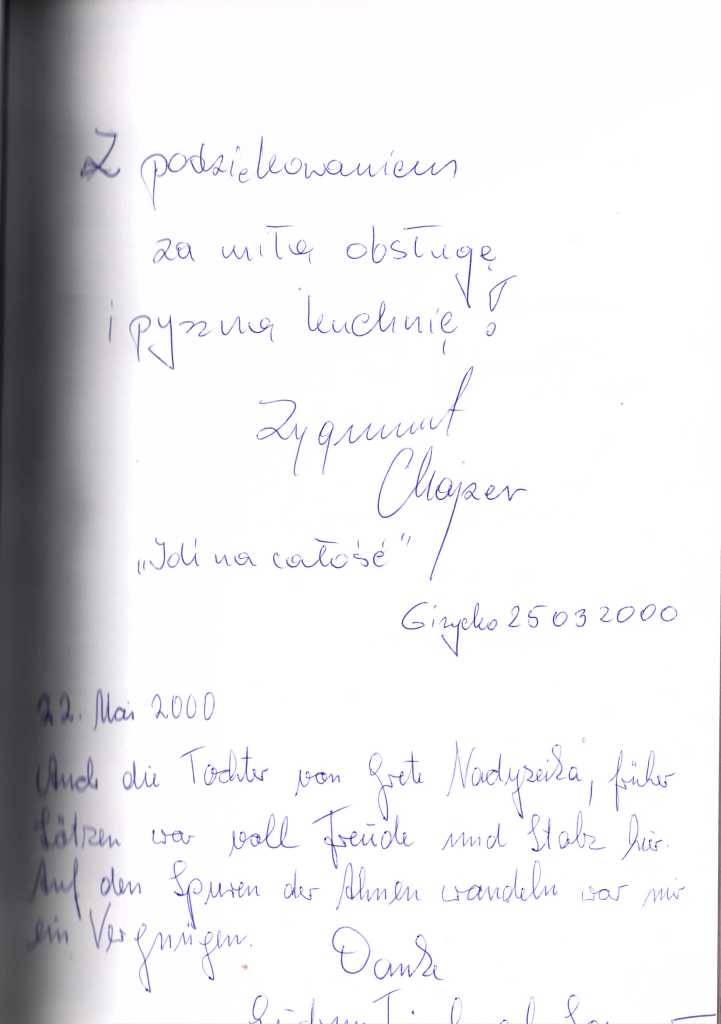 Z podziękowaniem
za miłą obsługę
i pyszną kuchnię!
Zygmunt
Chajzer
„Idź na całość”
Giżycko 25 03 2000
22. Mai 2000
Auch die Tochter von Grete Nadyzeika, früher
Lötzen war voll Freude und Stolz hier.
Auf den Spuren der Ahnen wandeln war mir
ein Vergnügen.
Danke